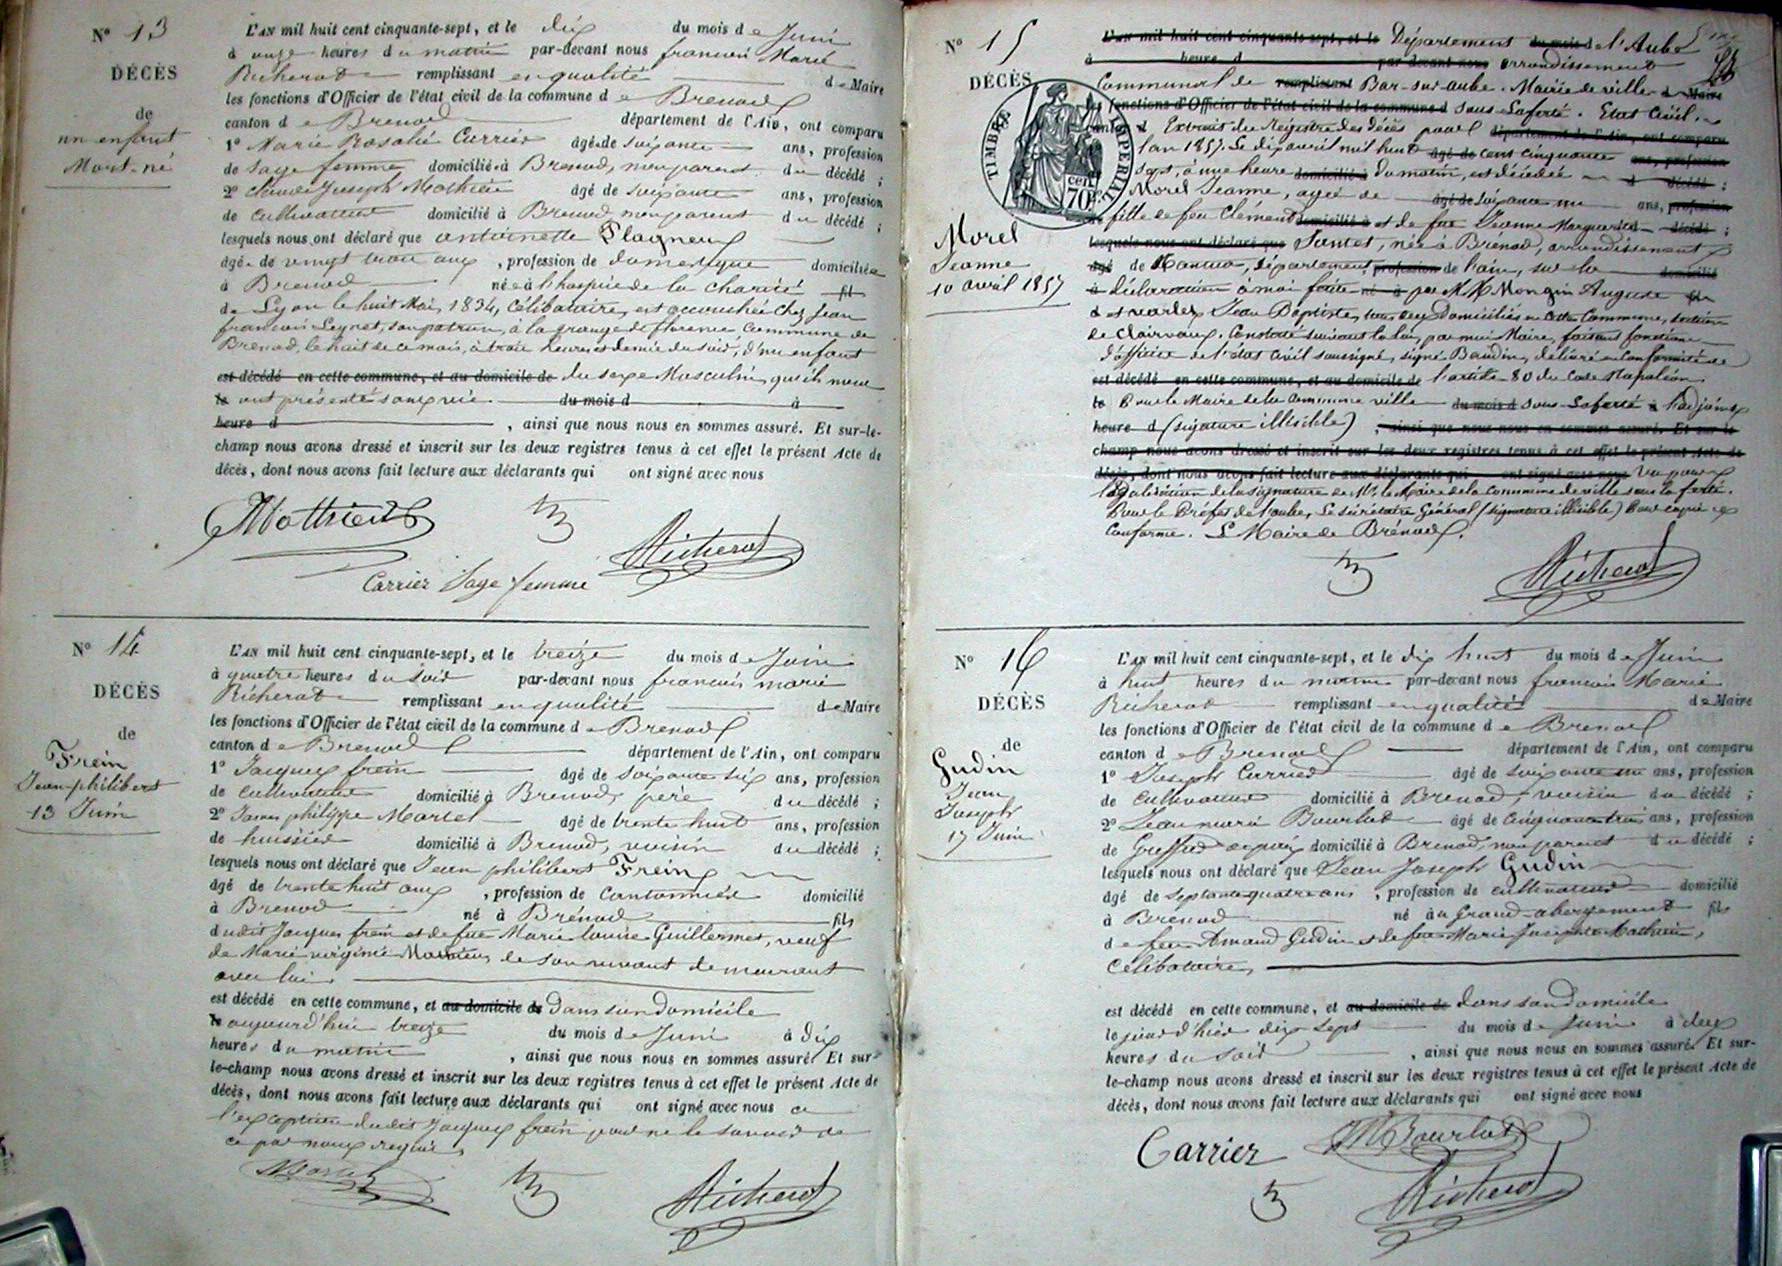 N° 13
DÉCÈS
de
un enfant
Mort-né
L'AN mil huit cent cinquante-sept, et le dix du mois de Juin
à onze heures du matin par-devant nous françois Marie
Richerot remplissant en qualité de Maire
les fonctions d'Officier de l'état civil de la commune de Brenod
canton de Brenod département de l'Ain, ont comparu
1° Marie Rosalie Carrier âgée de soixante ans, profession
de sage femme domiciliée à Brenod, non parent du décédé ;
2° Claude Joseph Mathieu âgé de soixante ans, profession
de cultivateur domicilié à Brenod non parent du décédé ;
lesquels nous ont déclaré que antoinette Plagneux
âgée de vingt trois ans, profession de domestique domiciliée
à Brenod née à l'hospice de la charité fil
de Lyon le huit Mai 1834, célibataire, est accouchée chez Jean
françois Leynet, son patron, à la grange de florence commune de
Brenod, le huit de ce mois, à trois heures et demie du soir, d'un enfant
est décédé en cette commune, et au domicile de du sexe Masculin qu'ils nous
le ont présenté sans vie du mois d à
heure d , ainsi que nous nous en sommes assuré. Et sur-le-
champ nous avons dressé et inscrit sur les deux registres tenus à cet effet le présent Acte de
décès, dont nous avons fait lecture aux déclarants qui ont signé avec nous
Mathieu
Richerot
Carrier Sage femme
N° 14
DÉCÈS
de
Frein
Jean philibert
13 Juin
L'AN mil huit cent cinquante-sept, et le treize du mois de Juin
à quatre heures du soir par-devant nous françois marie
Richerot remplissant en qualité de Maire
les fonctions d'Officier de l'état civil de la commune de Brenod
canton de Brenod département de l'Ain, ont comparu
1° Jacques frein âgé de soixante six ans, profession
de cultivateur domicilié à Brenod, père du décédé ;
2° James philippe Martel âgé de trente huit ans, profession
de huissier domicilié à Brenod, voisin du décédé ;
lesquels nous ont déclaré que Jean philibert Frein
âgé de trente huit ans, profession de Cantonnier domicilié
à Brenod né à Brénod fils
dudit Jacques frein et de feue Marie louise Guillermet, veuf
de Marie virginie de son vivant demeurant
avec lui
est décédé en cette commune, et au domicile de dans son domicile
le aujourd'hui treize du mois de Juin à dix
heures du matin , ainsi que nous nous en sommes assuré. Et sur-
le-champ nous avons dressé et inscrit sur les deux registres tenus à cet effet le présent Acte de
décès, dont nous avons fait lecture aux déclarants qui ont signé avec nous a
l'exception dudit Jacques frein pour ne le savoir de
ce par nous requis
Martel
Richerot
N° 15
DÉCÈS
TIMBRE IMPÉRIAL
70 cen
Morel
Jeanne
10 avril 1857
L'AN mil huit cent cinquante-sept, et le Département du mois de l'Aube
à heure d par devant nous arrondissement
Communal de remplissant Bar-sur-aube. Mairie de ville d Maire
les fonctions d'Officier de l'état civil de la commune d sous-Laferté. Etat Civil
canton d Extrait du Régistre des décès pour département de l'Ain, ont comparu
l'an 1857. Le dix avril mil huit âgé de cent cinquante ans, profession
sept, à une heure domicilié à du matin, est décédée d décédé ;
Morel Jeanne, agée de âgé de soixante un ans, profession
fille de feu Clément domicilié à et de feue Jeanne Marguerite décédé ;
lesquels nous ont déclaré que Santet, née à Brénod, arrondissement
âgé de Nantua, Département profession de l'ain, sur la domicilié
à déclaration à moi faite né à par MM. Mongin Auguste
et Jean Baptiste, tous deux domiciliés en cette Commune, section
de Clairvaux. Constaté suivant la loi, par moi Maire, faisant fonctions
d'officier de l'état civil soussigné, signé Baudin, délivré en conformité de
est décédé en cette commune, et au domicile de l'article 80 du Code Napoléon
le Pour le Maire de la commune ville du mois d sous-Laferté à l'adjoint
heure d (signature illisible) , ainsi que nous nous en sommes assuré. Et sur le
champ nous avons dressé et inscrit sur les deux registres tenus à cet effet le présent Acte de
décès, dont nous avons fait lecture aux déclarants qui ont signé avec nous Vu pour
légalisation de la signature de Mr. le Maire de la commune de ville sous la ferté.
Pour le Préfet de l'aube, Le Sécrétaire Général (signature illisible) Pour copie
Conforme. Le Maire de Brénod.
Richerot
N° 16
DÉCÈS
de
Gudin
Jean
Joseph
17 Juin
L'AN mil huit cent cinquante-sept, et le dix huit du mois de Juin
à huit heures du matin par-devant nous françois Marie
Richerot remplissant en qualité de Maire
les fonctions d'Officier de l'état civil de la commune de Brenod
canton de Brenod département de l'Ain, ont comparu
1° Joseph Carrier âgé de soixante un ans, profession
de cultivateur domicilié à Brenod, voisin du décédé ;
2° Jean marie Bourbot âgé de cinquante trois ans, profession
de Greffier domicilié à Brenod, non parent du décédé ;
lesquels nous ont déclaré que Jean Joseph Gudin
âgé de septante quatre ans, profession de cultivateur domicilié
à Brenod né au Grand-abergement fils
de feu Amand Gudin et de feue Marie Josephte Mathieu,
Célibataire,
est décédé en cette commune, et au domicile de dans son domicile
le jour d'hier dix sept du mois de Juin à deux
heures du soir , ainsi que nous nous en sommes assuré. Et sur-
le-champ nous avons dressé et inscrit sur les deux registres tenus à cet effet le présent Acte de
décès, dont nous avons fait lecture aux déclarants qui ont signé avec nous
Carrier
JM Bourbot
Richerot